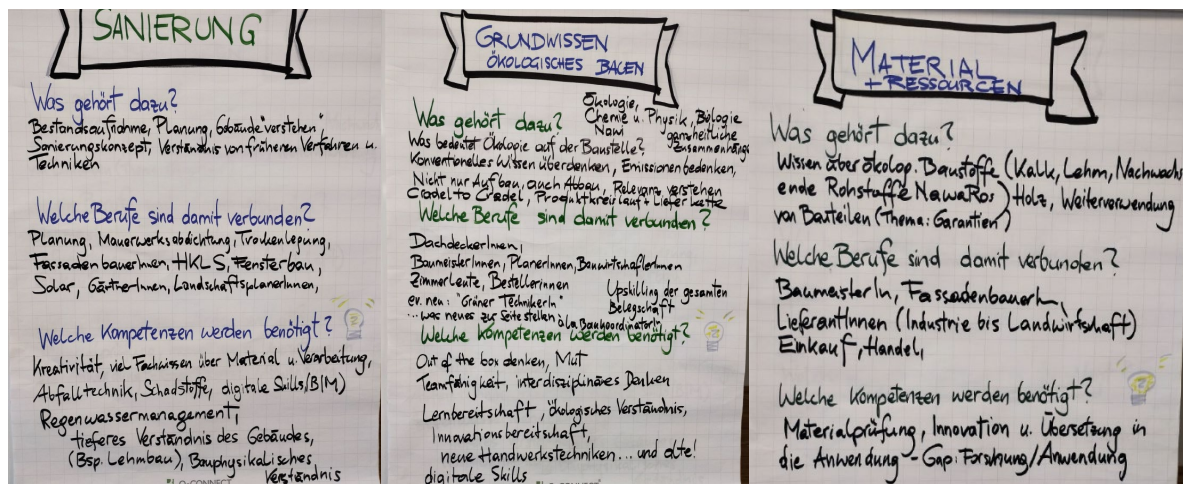 SANIERUNG
Was gehört dazu?
Bestandsaufnahme, Planung, Gebäude "verstehen"
Sanierungskonzept, Verständnis von früheren Verfahren u.
Techniken
Welche Berufe sind damit verbunden?
Planung, Mauerwerksabdichtung, Trockenlegung,
FassadenbauerInnen, HKLS, Fensterbau,
Solar, GärtnerInnen, LandschaftsplanerInnen,
Welche Kompetenzen werden benötigt?
Kreativität, viel Fachwissen über Material u. Verarbeitung,
Abfalltechnik, Schadstoffe, digitale Skills/BIM)
Regenwassermanagement,
tieferes Verständnis des Gebäudes,
(Bsp. Lehmbau), Bauphysikalisches
Verständnis
GRUNDWISSEN
ÖKOLOGISCHES BAUEN
Ökologie,
Chemie u. Physik, Biologie
Nawi ganzheitliche
Zusammenhänge
Was gehört dazu?
Was bedeutet Ökologie auf der Baustelle?
Konventionelles Wissen überdenken, Emissionen bedenken,
Nicht nur Aufbau, auch Abbau, Relevanz verstehen
Cradel to Cradel, Produktkreislauf + Lieferkette
Welche Berufe sind damit verbunden?
DachdeckerInnen,
BaumeisterInnen, PlanerInnen, BauwirtschafterInnen
Zimmerleute, Bestellerinnen
ev. neu: "Grüner TechnikerIn"
... was neues zur Seite stellen à la BaukoordinatorIn
Upskilling der gesamten
Belegschaft
Welche Kompetenzen werden benötigt?
Out of the box denken, Mut
Teamfähigkeit, interdisziplinäres Denken
Lernbereitschaft, ökologisches Verständnis,
Innovationsbereitschaft,
neue Handwerkstechniken... und alte!
digitale Skills
MATERIAL
+ RESSOURCEN
Was gehört dazu?
Wissen über ökolog. Baustoffe (Kalk, Lehm, Nachwachs
ende Rohstoffe NawaRos) Holz, Weiterverwendung
von Bauteilen (Thema: Garantien)
Welche Berufe sind damit verbunden?
BaumeisterIn, FassadenbauerIn,
LieferantInnen (Industrie bis Landwirtschaft)
Einkauf, Handel,
Welche Kompetenzen werden benötigt?
Materialprüfung, Innovation u. Übersetzung in
die Anwendung - Gap: Forschung/Anwendung